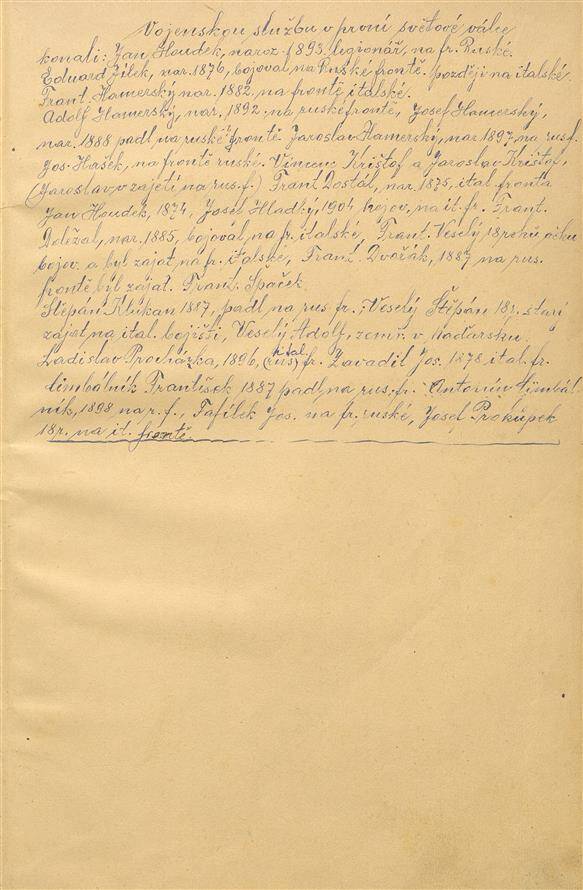 Vojenskou službu v první světové válce
konali: Jan Houdek, naroz. 1893, legionář, na fr. Ruské.
Eduard Jílek, nar. 1876, bojoval na Ruské frontě. později na italské.
Frant. Hamerský nar. 1882. na frontě italské.
Adolf Hamerský, nar. 1892. na ruské frontě, Josef Hamerský,
nar. 1888 padl na ruské frontě. Jaroslav Hamerský, nar 1897, na rus f.
Jos. Hašek, na frontě ruské. Vincenc Krištof a Jaroslav Krištof,
(Jaroslav, v zajetí na rus. f.) Frant Dostál, nar. 1875, ital. fronta
Jan Houdek, 1874, Josef Hladký, 1904 bojov. na it. fr. Frant.
Doležal, nar. 1885, bojoval na fr. italské, Frant. Veselý 18 roků
bojov. a byl zajat na fr. italské, Frant. Dvořák, 1887 na rus.
frontě byl zajat. Frant. Špaček.
Štěpán Klukan 1887, padl na rus fr., Veselý Štěpán 18r. starý
zajat na ital. bojišti, Veselý Adolf, zemř. v Maďarsku.
Ladislav Procházka, 1896, (rus) ital. fr. Zavadil Jos. 1878 ital. fr.
Cimbálník František 1887 padl na rus. fr. Antonín Cimbál
ník, 1898 na r. f., Fafílek Jos. na fr. ruské, Josef Prokůpek
18r. na it. frontě.